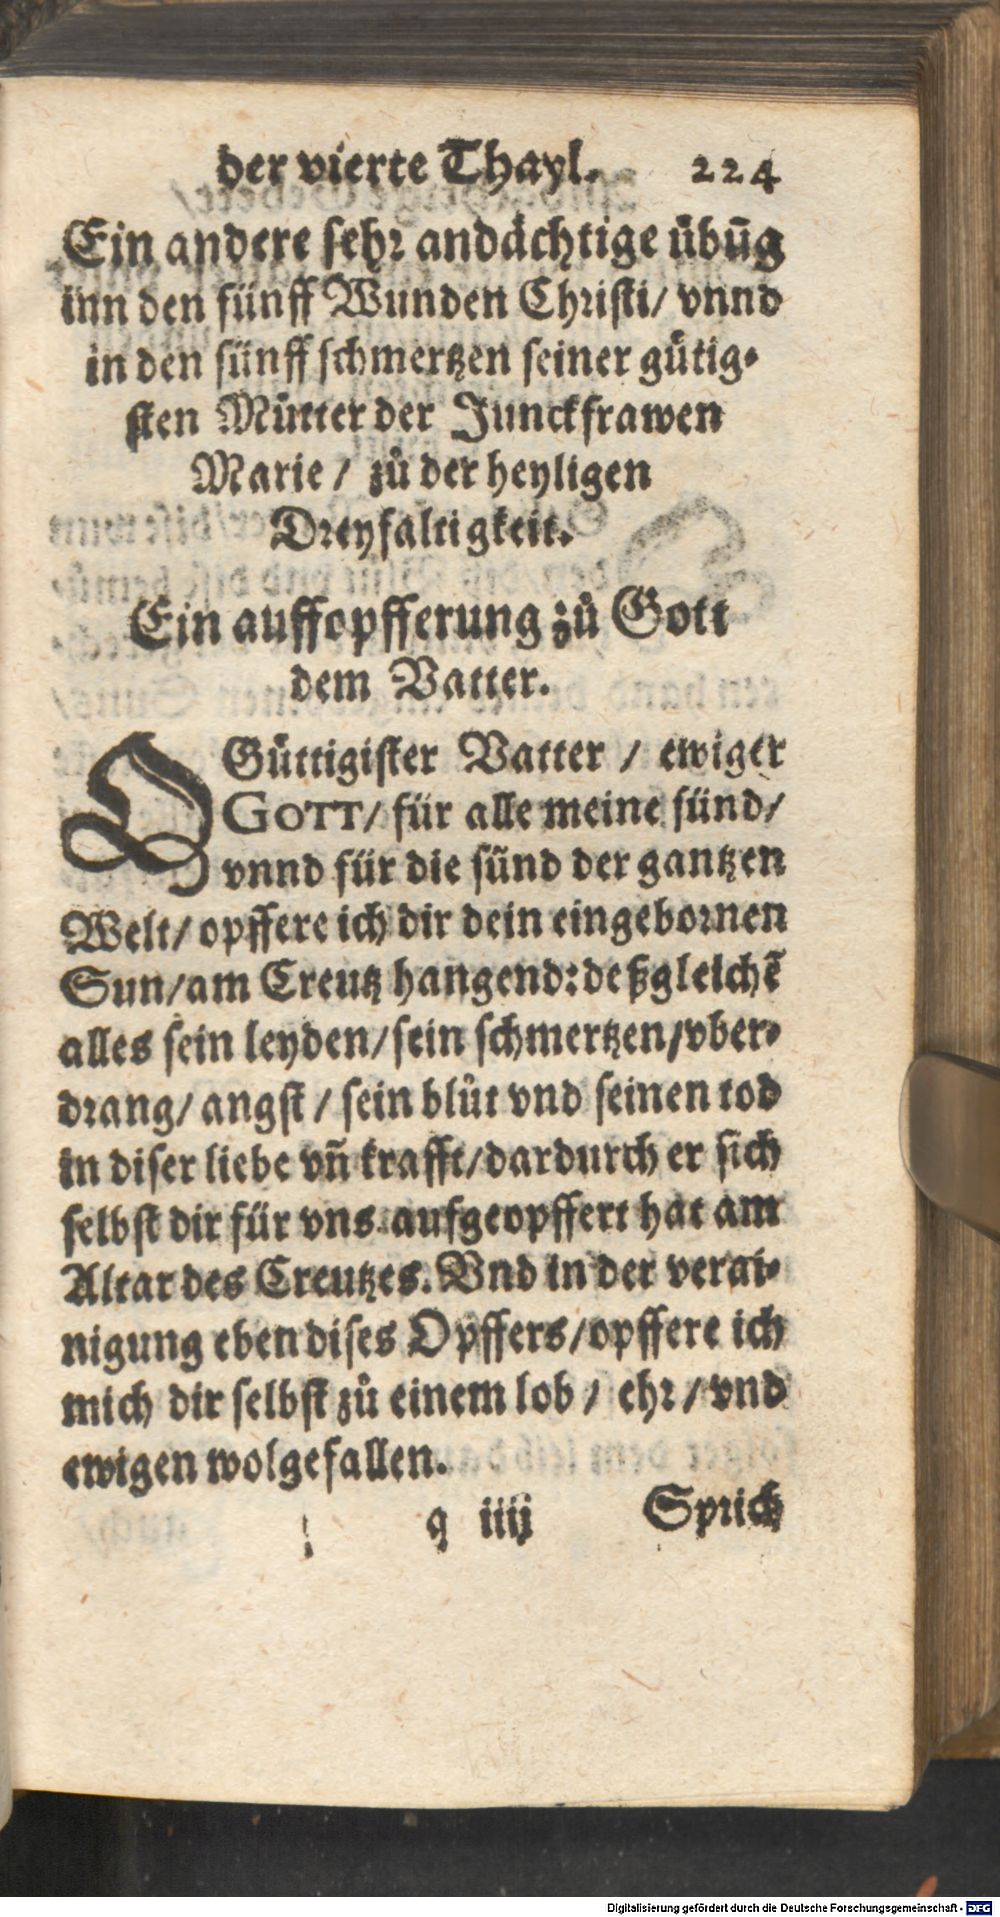 der vierte Thayl. 224
Ein andere sehr andächtige übūg
inn den fünff Wunden Christi/ vnnd
in den fünff schmertzen seiner gütig-
sten Mütter der Junckfrawen
Marie / zů der heyligen
Dreyfaltigkeit.
Ein auffopfferung zů Gott
dem Vatter.
O Güttigister Vatter / ewiger
GOTT/ für alle meine sünd/
vnnd für die sünd der gantzen
Welt/ opffere ich dir dein eingebornen
Sun/am Creutz hangend: deßgleichẽ
alles sein leyden/sein schmertzen/vber-
drang/ angst / sein blůt vnd seinen tod
in diser liebe vñ krafft/dardurch er sich
selbst dir für vns aufgeopffert hat am
Altar des Creutzes. Vnd in der verai-
nigung eben dises Opffers/opffere ich
mich dir selbst zů einem lob / ehr / vnd
ewigen wolgefallen.
q iiij Sprich
Digitalisierung gefördert durch die Deutsche Forschungsgemeinschaft - DFG